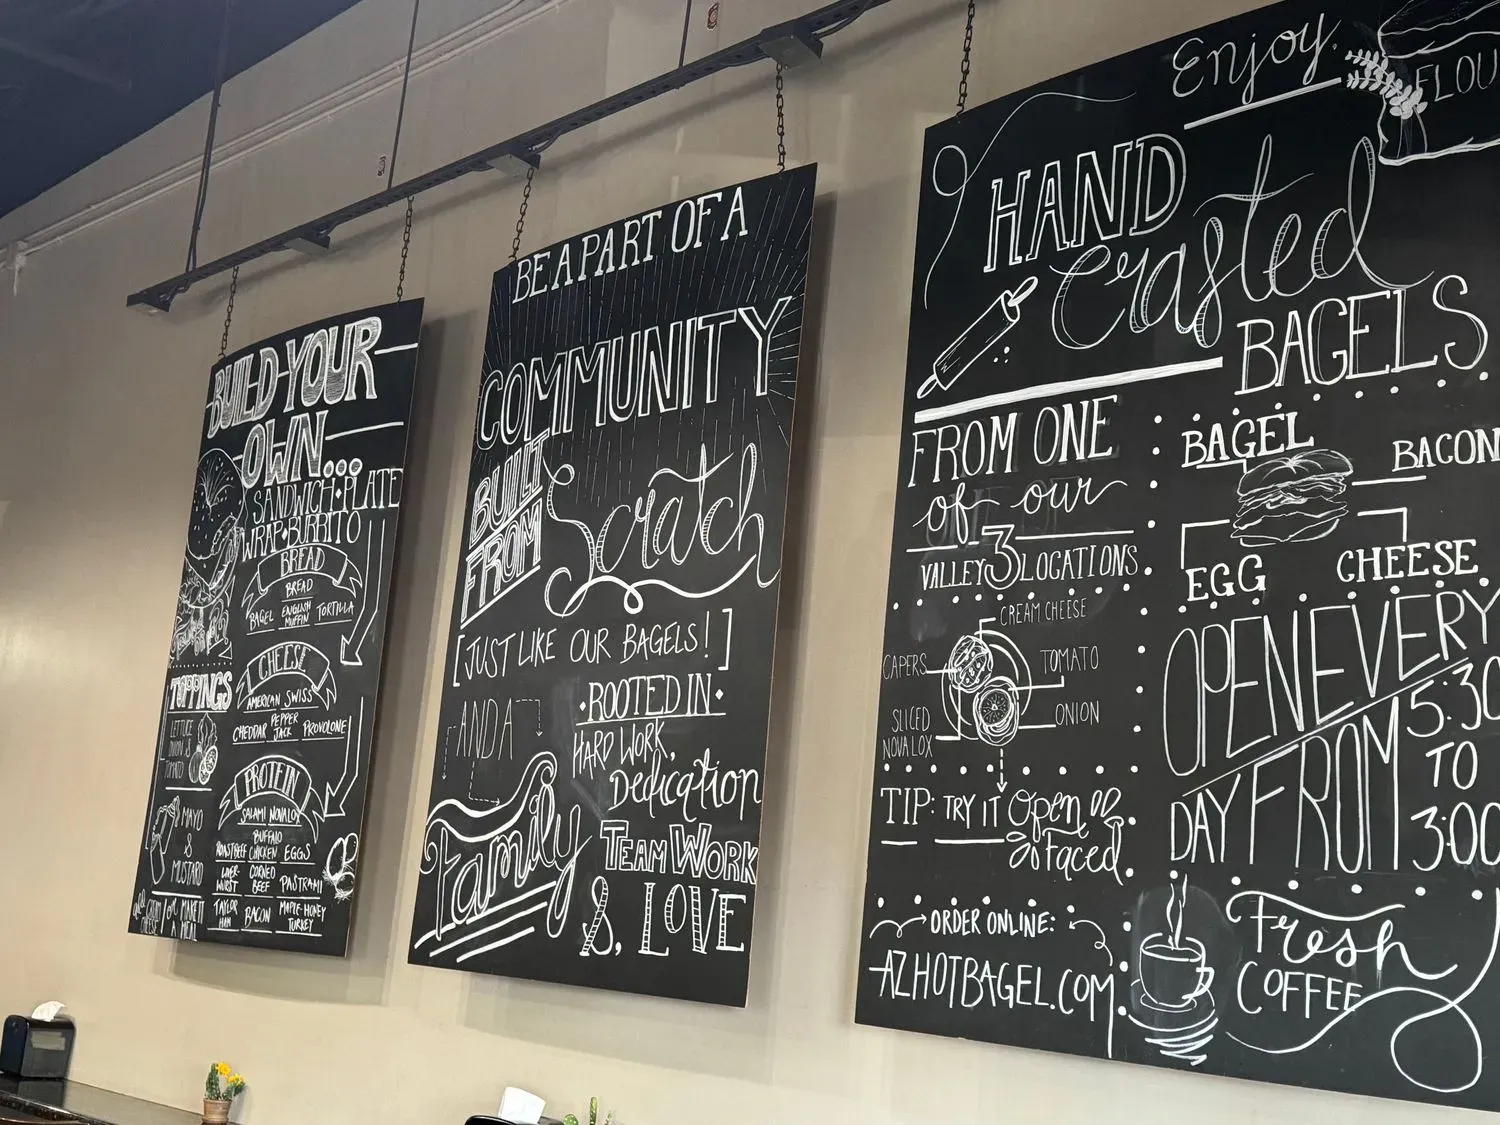 BUILD-YOUR
OWN...
SANDWICH • PLATE
WRAP • BURRITO
BREAD
BREAD
BAGEL ENGLISH MUFFIN TORTILLA
CHEESE
AMERICAN SWISS
CHEDDAR PEPPER JACK PROVOLONE
PROTEIN
SALAMI NOVA LOX
ROAST BEEF BUFFALO CHICKEN EGGS
LIVER-WURST CORNED BEEF PASTRAMI
TAYLOR HAM BACON MAPLE-HONEY TURKEY
TOPPINGS
LETTUCE
ONION &
TOMATO
MAYO
&
MUSTARD
MAKE IT
A MEAL
BE A PART OF A
COMMUNITY
BUILT
FROM
Scratch
[JUST LIKE OUR BAGELS!]
AND A
Family
• ROOTED IN •
HARD WORK,
Dedication
TEAM WORK
&, LOVE
Enjoy
FLOU
HAND
Crafted
BAGELS
FROM ONE
of our
VALLEY 3 LOCATIONS
CREAM CHEESE
CAPERS
TOMATO
SLICED
NOVA LOX
ONION
TIP: TRY IT Open
Faced
ORDER ONLINE:
AZHOTBAGEL.COM
BAGEL
BACON
EGG
CHEESE
OPEN EVERY
DAY FROM
5:30
TO
3:00
Fresh
COFFEE